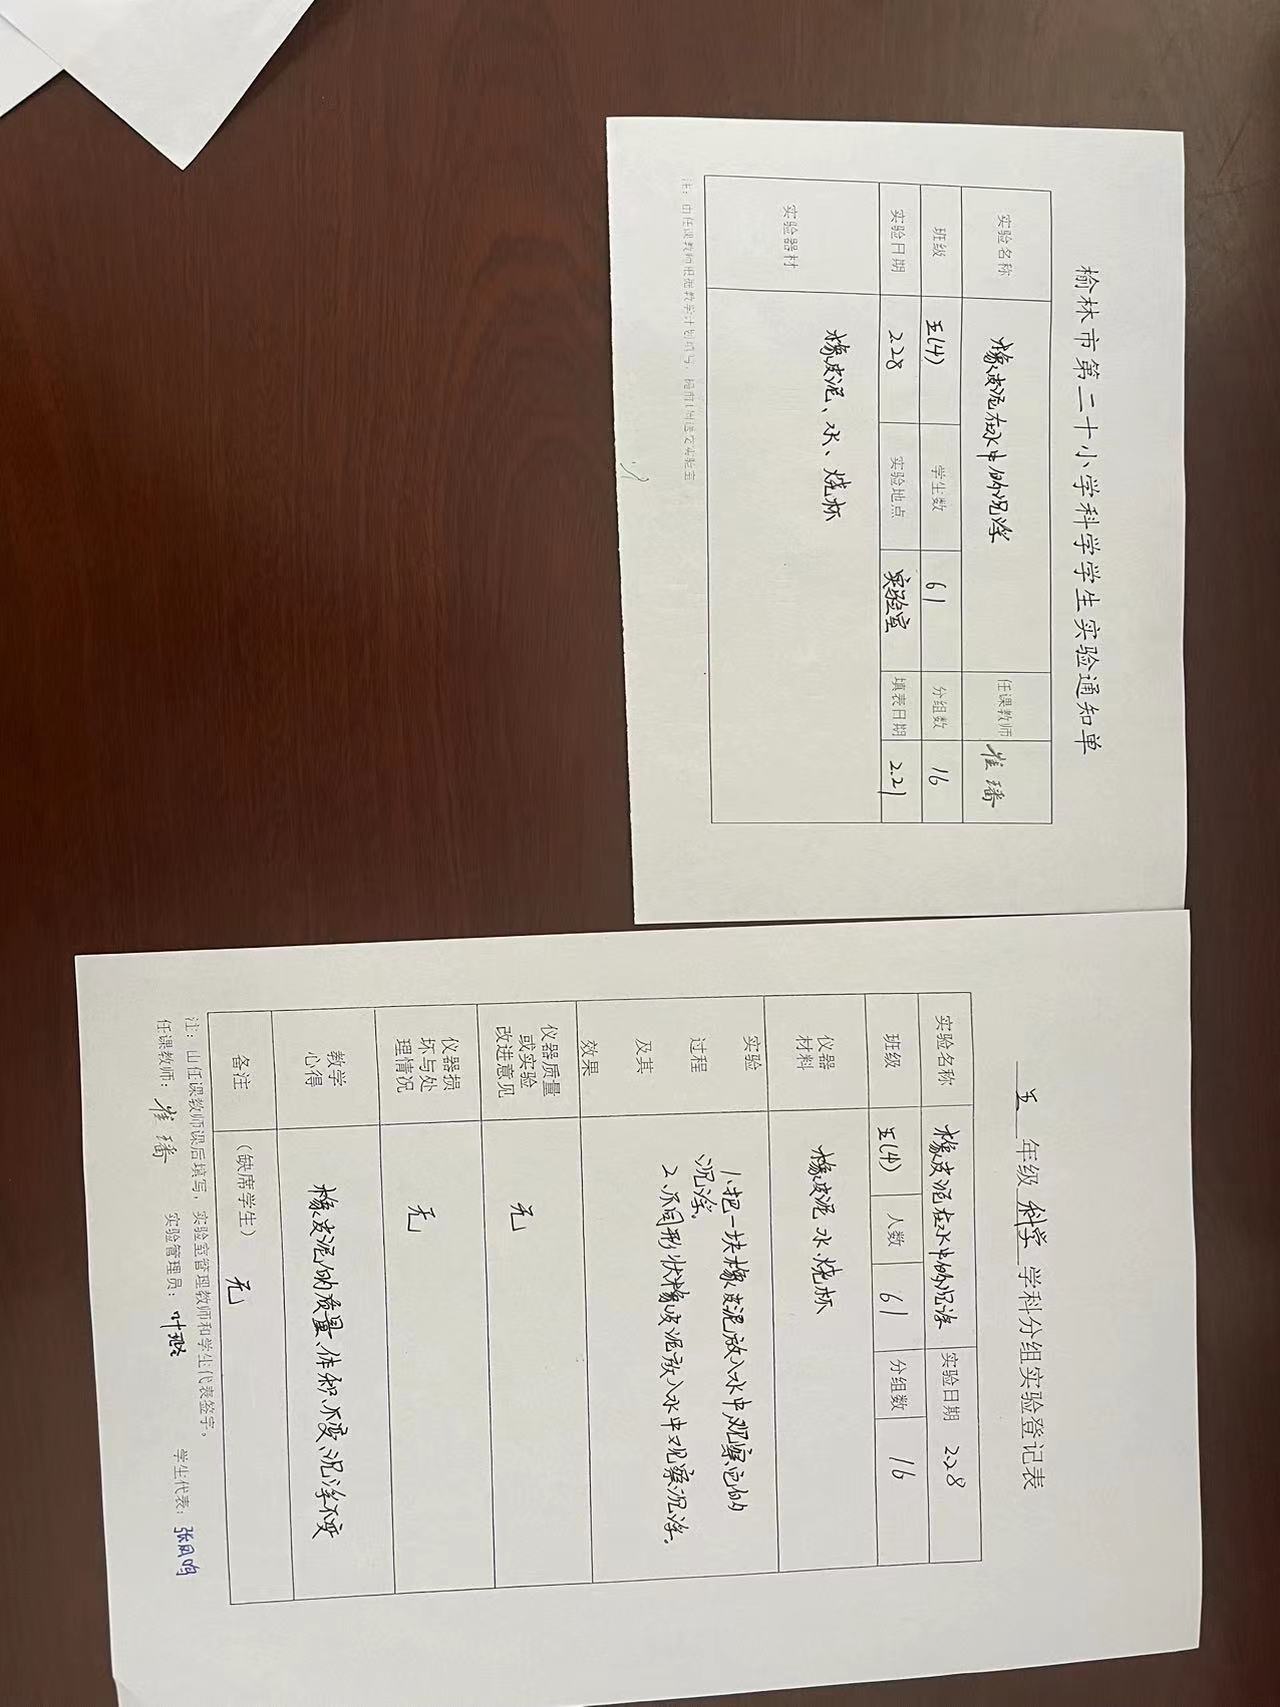 榆林市第二十小学科学学生实验通知单
实验名称 橡皮泥在水中的沉浮 任课教师 崔璠
班级 五(4) 学生数 61 分组数 16
实验日期 2.28 实验地点 实验室 填表日期 2.21
实验器材 橡皮泥、水、烧杯
注：由任课教师根据教学计划填写，提前1周送交实验室
五 年级 科学 学科分组实验登记表
实验名称 橡皮泥在水中的沉浮 实验日期 2.28
班级 五(4) 人数 61 分组数 16
仪器材料 橡皮泥、水、烧杯
实验过程及其效果
1、把一块橡皮泥放入水中观察它的
沉浮.
2、不同形状橡皮泥放入水中观察沉浮.
仪器质量或实验改进意见 无
仪器损坏与处理情况 无
教学心得 橡皮泥的质量、体积不变、沉浮不变
备注 （缺席学生） 无
注：由任课教师课后填写，实验室管理教师和学生代表签字。
任课教师：崔璠 实验管理员：叶 学生代表：张凤鸣